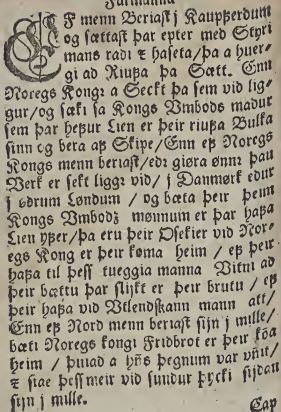 Farmanna
EF menn Beriast j Kaupßerdum
og sættast þar epter med Styri
mans radi ꝛ haseta/þa a huer-
gi ad Riußa þa Sætt. Enn
Noregs Kongꝛ a Seckt þa sem vid lig-
gur/og sæki sa Kongs Vmbods madur
sem þar heßur Lien er þeir riußa Bulka
sinn og bera aß Skipe/Enn eß Noregs
Kongs menn beriast/edꝛ giøra ønnꝛ þau
Verk er sekt liggꝛ vid/ j Danmørk edur
j ødrum Løndum / og bæta þeir þeim
Kongs Vmbodꝫ mønnum er þar haßa
Lien yßer/þa eru þeir Osekier vid Nor-
egs Kong er þeir koma heim / eß þeir
haßa til þess tueggia manna Vitni ad
þeir bættu þar slijkt er þeir brutu / eß
þeir haßa vid Vtlendskann mann att/
Enn eß Nord menn beriast sijn j mille/
bæti Noregs kongi Fridbrot er þeir koa
heim / þuiad a hñs þegnum var vñit/
ꝛ siae þess meir vid sundur þycki sijdan
sijn j mille.
Cap